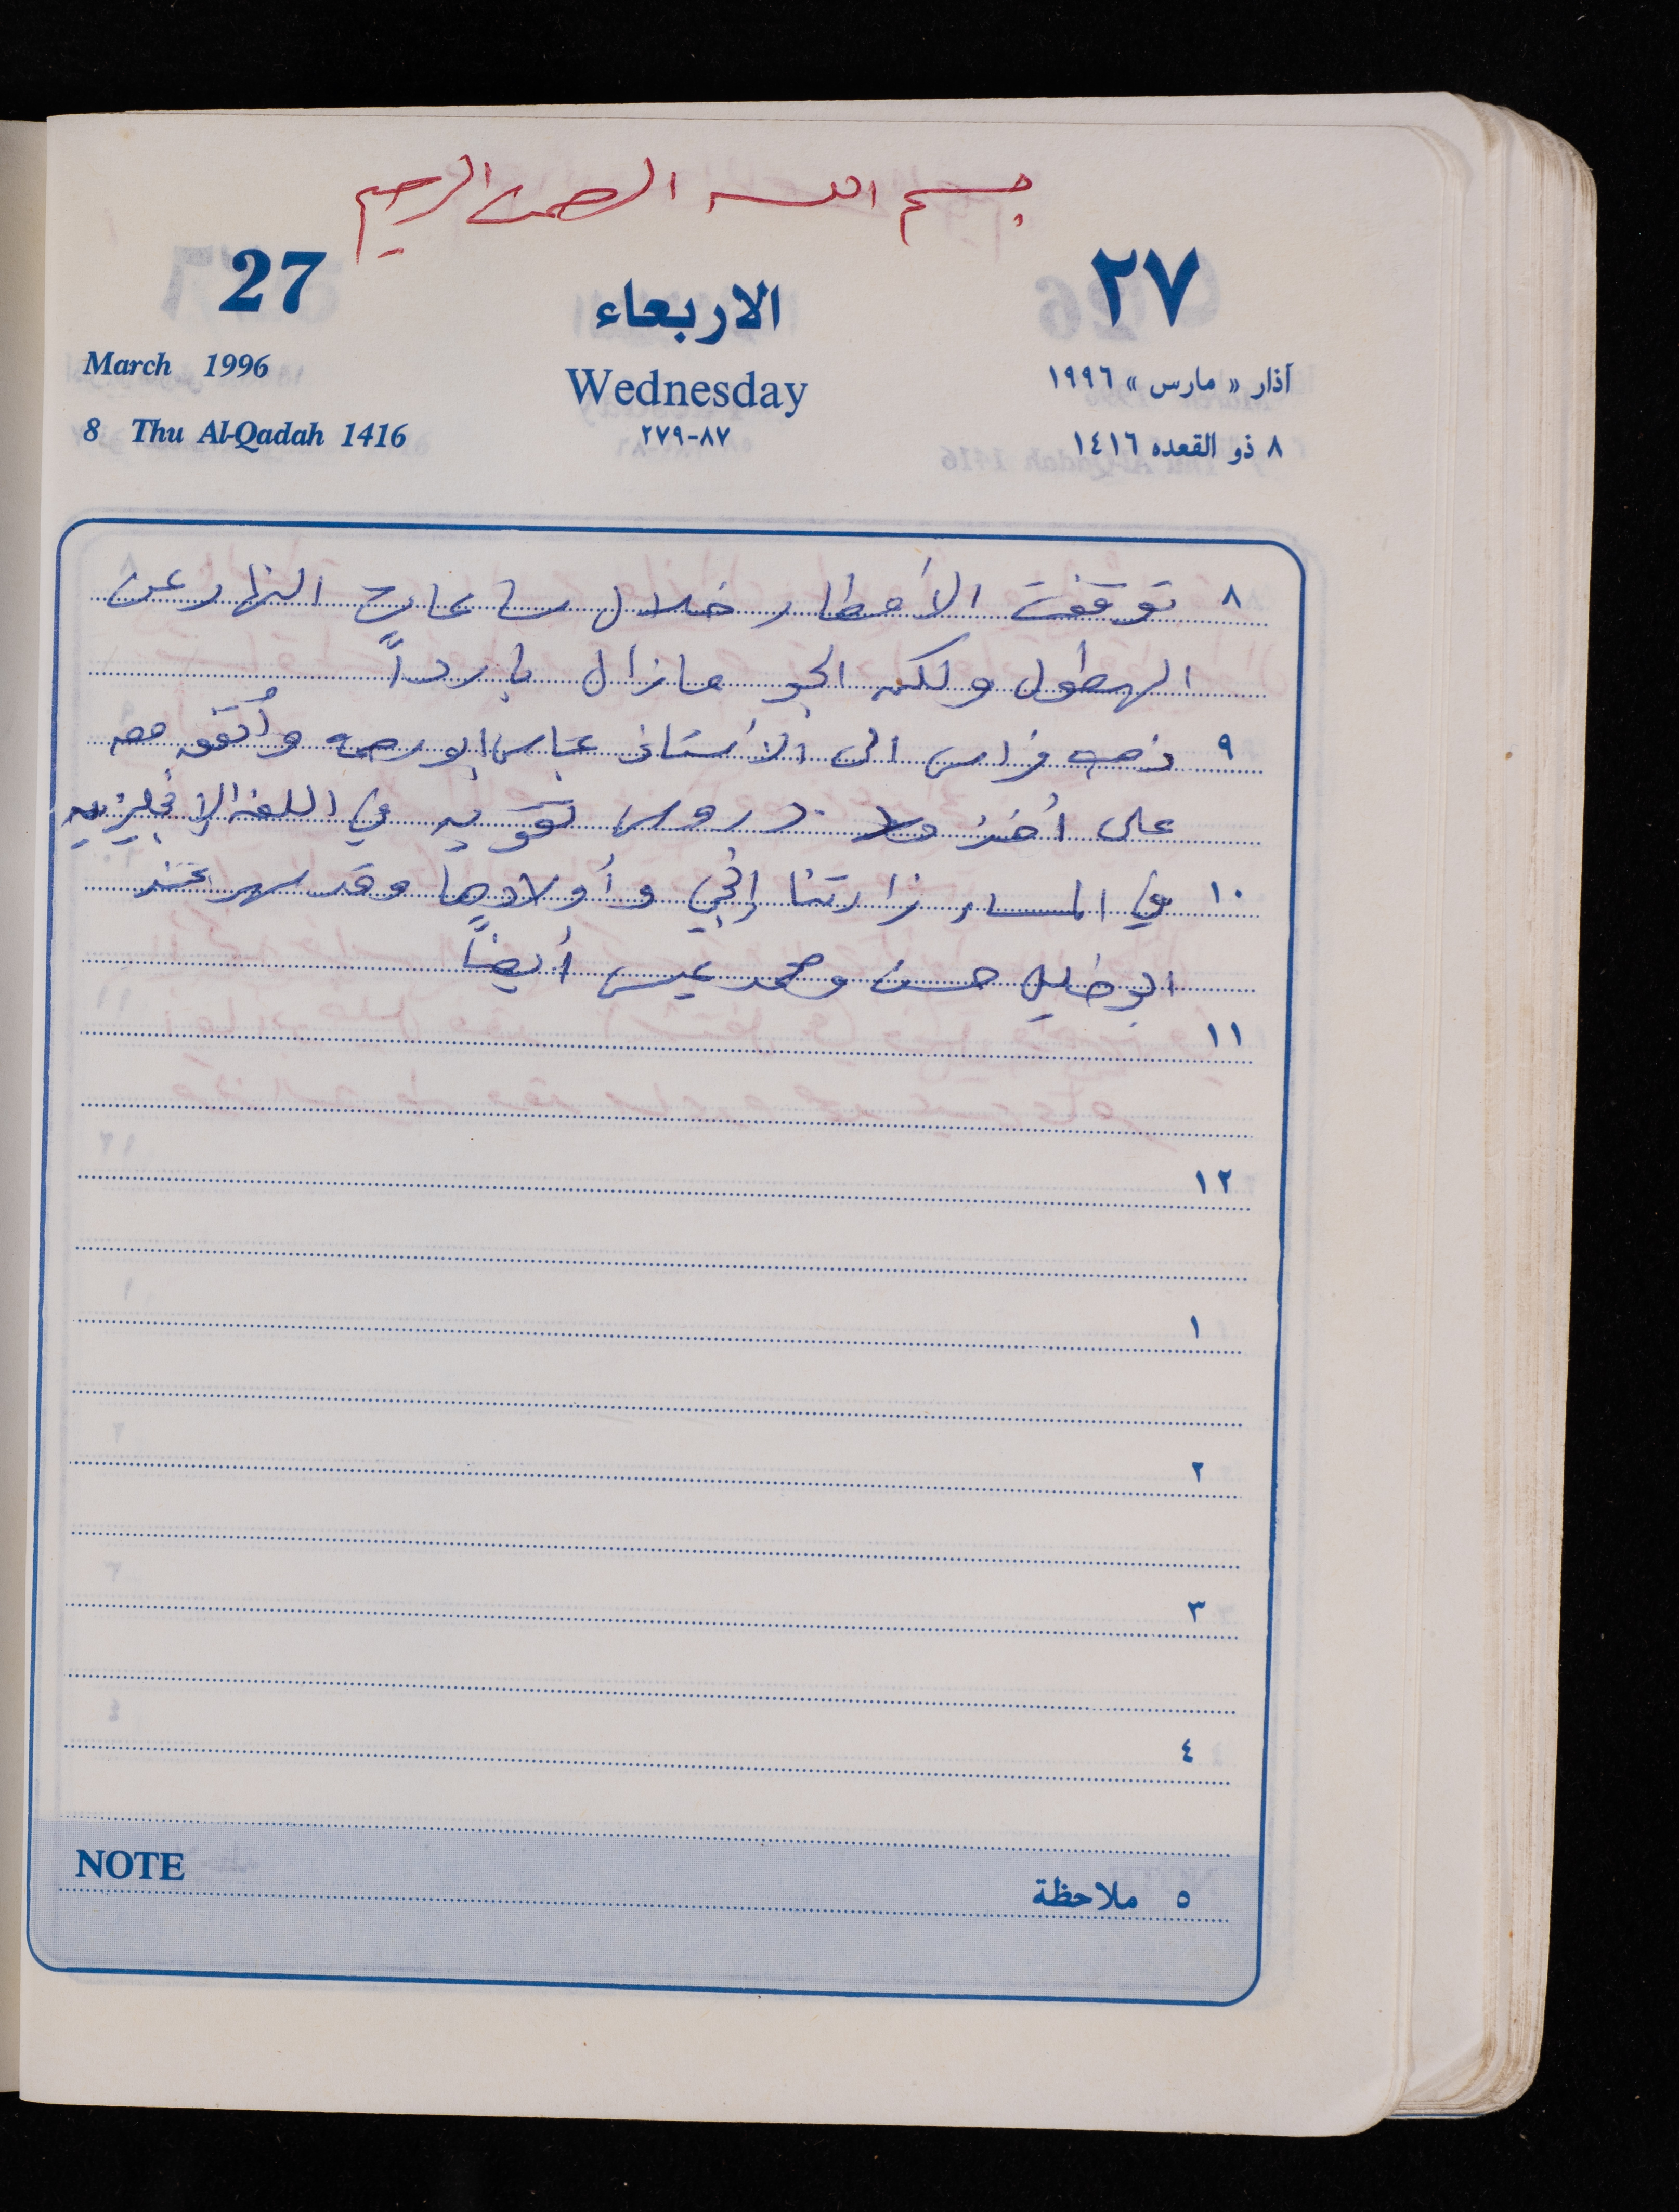 بسم الله الرحمن الرحيم
27 الاربعاء ٢٧
March 1996 Wednesday آذار « مارس » ١٩٩٦
8 Thu Al-Qadah 1416 ٨٧-٢٧٩ ٨ ذو القعده ١٤١٦
٨ توقفت الأمطار خلال ساعات النهار عن
الهطول ولكن الجو مازال بارداً
٩ ذهب فراس الى الأستاذ عباس ابو رحمه وأتفق معه
على أخذ دروس تقويه في اللغه الإنجليزيه
١٠ في المساء زارتنا إختي وأولادها وقد سهر عند
ابو خليل حسن ومحمد عيسى أيضاً
١١
١٢
١
٢
٣
٤
NOTE ٥ ملاحظة